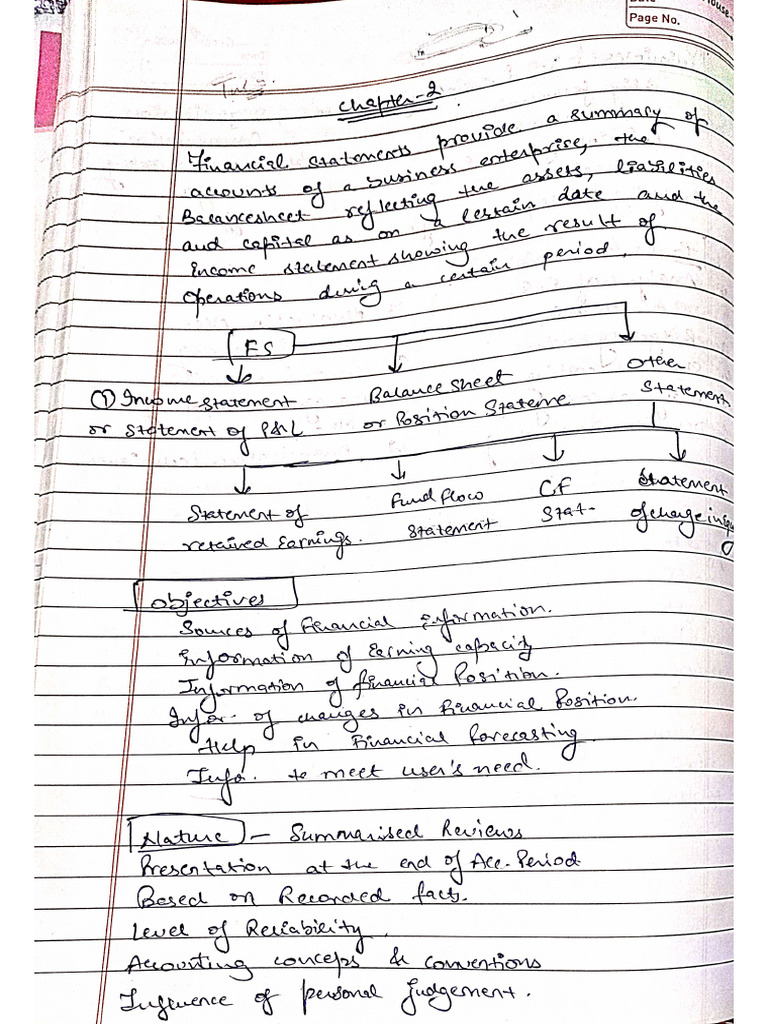 Page No.
Chapter-2
Financial statements provide a summary of
accounts of a business enterprise, the
Balancesheet reflecting the assets, liabilities
and capital as on a certain date and the
income statement showing the result of
operations during a certain period.
FS
① Income statement
or statement of P&L
Balance sheet
or Position Stateme
Other
Statement
Statement of
retained Earnings.
Fund flow
Statement
CF
Stat-
Statement
of change in
Objectives
Sources of Financial Information.
Information of Earning capacity
Information of financial Position.
Infor. of changes in Financial Position.
Help in Financial Forecasting.
Info. to meet user's need.
Nature - Summarised Reviews
Presentation at the end of Acc. Period
Based on Recorded facts.
Level of Reliability.
Accounting concepts & conventions
Influence of personal judgement.